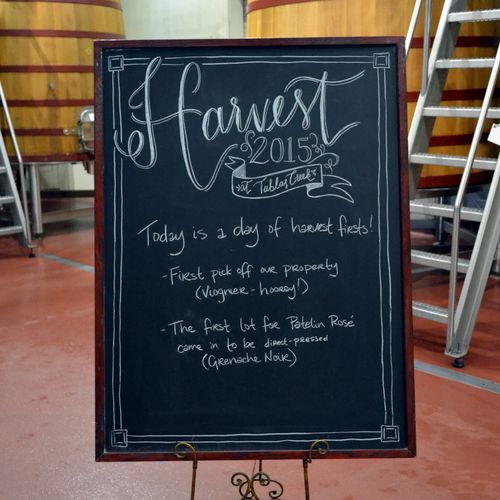 Harvest
2015
at Tablas Creek
Today is a day of harvest firsts!
-First pick off our property
(Viognier - hooray!)
-The first lot for Patelin Rosé
came in to be direct-pressed
(Grenache Noir)